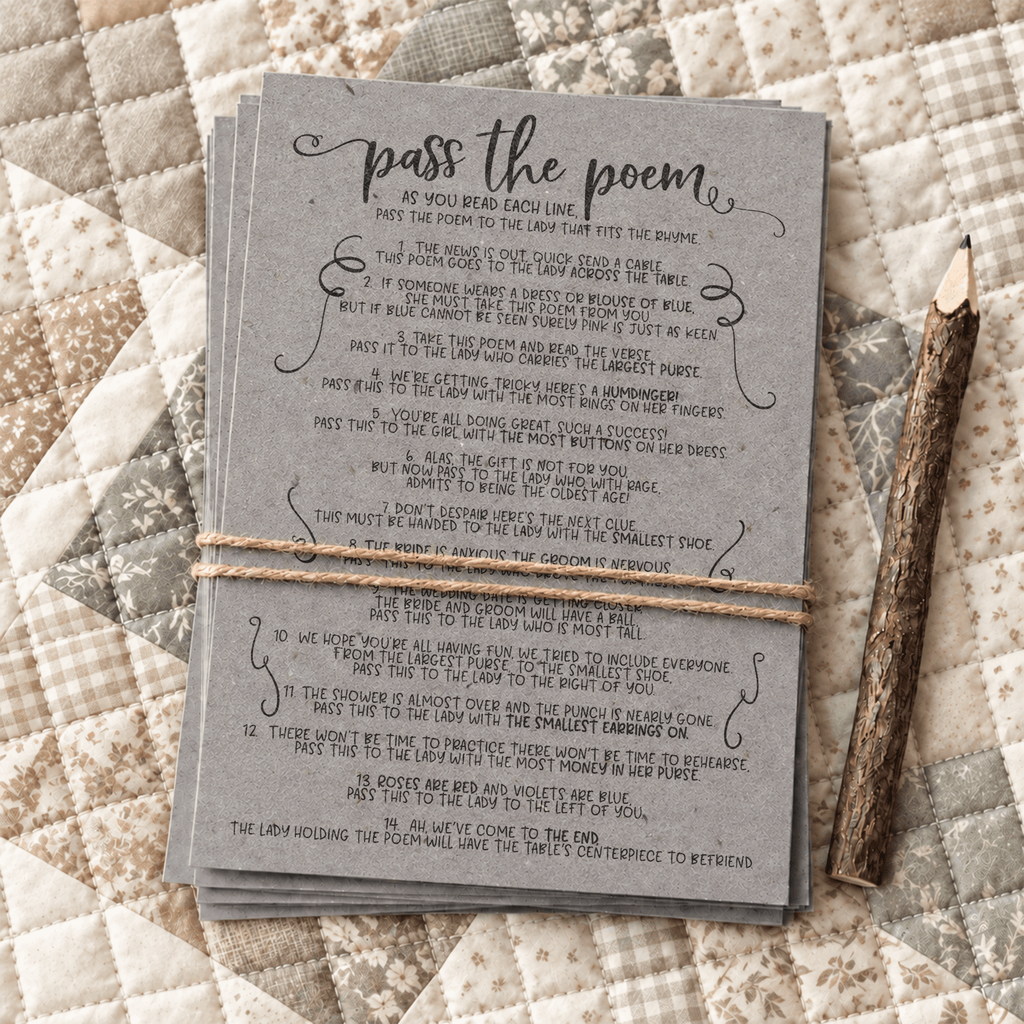 pass the poem
AS YOU READ EACH LINE,
PASS THE POEM TO THE LADY THAT FITS THE RHYME.
1. THE NEWS IS OUT, QUICK SEND A CABLE,
THIS POEM GOES TO THE LADY ACROSS THE TABLE.
2. IF SOMEONE WEARS A DRESS OR BLOUSE OF BLUE,
SHE MUST TAKE THIS POEM FROM YOU
BUT IF BLUE CANNOT BE SEEN SURELY PINK IS JUST AS KEEN
3. TAKE THIS POEM AND READ THE VERSE,
PASS IT TO THE LADY WHO CARRIES THE LARGEST PURSE.
4. WE'RE GETTING TRICKY, HERE'S A HUMDINGER!
PASS THIS TO THE LADY WITH THE MOST RINGS ON HER FINGERS.
5. YOU'RE ALL DOING GREAT, SUCH A SUCCESS!
PASS THIS TO THE GIRL WITH THE MOST BUTTONS ON HER DRESS.
6. ALAS, THE GIFT IS NOT FOR YOU,
BUT NOW PASS TO THE LADY WHO WITH RAGE,
ADMITS TO BEING THE OLDEST AGE!
7. DON'T DESPAIR HERE'S THE NEXT CLUE
THIS MUST BE HANDED TO THE LADY WITH THE SMALLEST SHOE.
8. THE BRIDE IS ANXIOUS, THE GROOM IS NERVOUS,
PASS THIS TO THE LADY WHO DROVE THE
9. THE WEDDING DATE IS GETTING CLOSER,
THE BRIDE AND GROOM WILL HAVE A BALL
PASS THIS TO THE LADY WHO IS MOST TALL.
10. WE HOPE YOU'RE ALL HAVING FUN, WE TRIED TO INCLUDE EVERYONE.
FROM THE LARGEST PURSE, TO THE SMALLEST SHOE,
PASS THIS TO THE LADY TO THE RIGHT OF YOU.
11. THE SHOWER IS ALMOST OVER AND THE PUNCH IS NEARLY GONE
PASS THIS TO THE LADY WITH THE SMALLEST EARRINGS ON.
12. THERE WON'T BE TIME TO PRACTICE THERE WON'T BE TIME TO REHEARSE,
PASS THIS TO THE LADY WITH THE MOST MONEY IN HER PURSE.
13. ROSES ARE RED AND VIOLETS ARE BLUE,
PASS THIS TO THE LADY TO THE LEFT OF YOU,
14. AH, WE'VE COME TO THE END,
THE LADY HOLDING THE POEM WILL HAVE THE TABLE'S CENTERPIECE TO BEFRIEND.